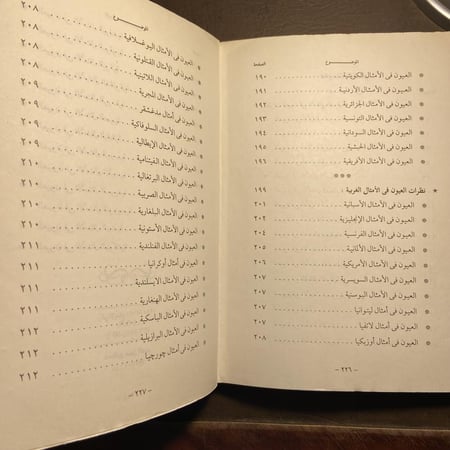 الموضوع الصفحة
العيون فى الأمثال الكويتية ١٩٠
العيون فى الأمثال الأردنية ١٩١
العيون فى الأمثال الجزائرية ١٩٢
العيون فى الأمثال التونسية ١٩٣
العيون فى الأمثال السودانية ١٩٤
العيون فى الأمثال الحبشية ١٩٥
العيون فى الأمثال الأفريقية ١٩٦
***
نظرات العيون فى الأمثال الغربية ١٩٩
العيون فى الأمثال الأسبانية ٢٠١
العيون فى الأمثال الإنجليزية ٢٠٢
العيون فى الأمثال الفرنسية ٢٠٤
العيون فى الأمثال الألمانية ٢٠٥
العيون فى الأمثال الأمريكية ٢٠٦
العيون فى الأمثال السويسرية ٢٠٧
العيون فى الأمثال البوسنية ٢٠٧
العيون فى أمثال ليتوانيا ٢٠٧
العيون فى أمثال لاتفيا ٢٠٧
العيون فى أمثال أوزبكيا ٢٠٨
- ٢٢٦ -
الموضوع
العيون فى الأمثال اليوغسلافية ٢٠٨
العيون فى الأمثال القتلونية ٢٠٨
العيون فى الأمثال اللاتينية ٢٠٨
العيون فى الأمثال المجرية ٢٠٩
العيون فى أمثال مدغشقر ٢٠٩
العيون فى الأمثال السلوفاكية ٢٠٩
العيون فى الأمثال الإيطالية ٢٠٩
العيون فى الأمثال الفيتنامية ٢٠٩
العيون فى الأمثال البرتغالية ٢١٠
العيون فى الأمثال الصربية ٢١٠
العيون فى الأمثال البلغارية ٢١٠
العيون فى الأمثال الأستونية ٢١٠
العيون فى الأمثال الفنلندية ٢١١
العيون فى أمثال أوكرانيا ٢١١
العيون فى الأمثال الايسلندية ٢١١
العيون فى الأمثال الهنغارية ٢١١
العيون فى الأمثال الباسكية ٢١٢
العيون فى الأمثال البرازيلية ٢١٢
العيون فى أمثال چورچيا ٢١٢
- ٢٢٧ -